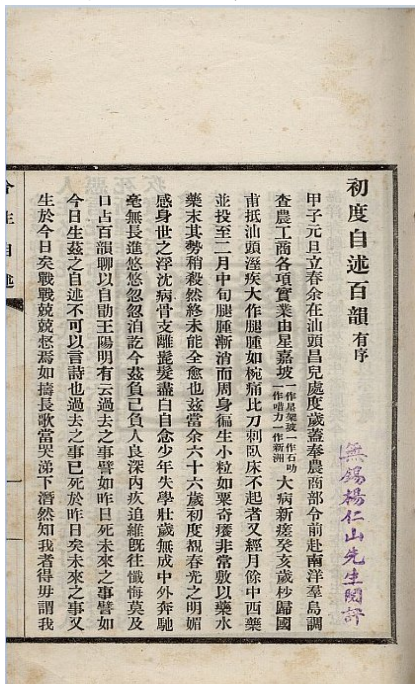 初度自述百韻有序
無錫楊仁山先生閱評
甲子元旦立春余在汕頭昌兒處度歲蓋奉農商部令前赴南洋羣島調
查農工商各項實業由星嘉坡一作星架坡一作石叻一作唶力一作新洲大病新瘥癸亥歲杪歸國
甫抵汕頭溼疾大作腿腫如椀痛比刀刺臥床不起者又經月餘中西藥
並投至二月中旬腿腫漸消而周身徧生小粒如粟奇癢非常敷以藥水
藥末其勢稍殺然終未能全愈也茲當余六十六歲初度覩春光之明媚
感身世之浮沈病骨支離鬢髮盡白自念少年失學壯歲無成中外奔馳
毫無長進悠悠忽忽泊訖今茲負己負人良深內疚追維旣往懺悔莫及
口占百韻聊以自勖王陽明有云過去之事譬如昨日死未來之事譬如
今日生茲之自述不可以言詩也過去之事已死於昨日矣未來之事又
生於今日矣戰戰兢兢惄焉如擣長歌當哭涕下潸然知我者得毋謂我
今生自述